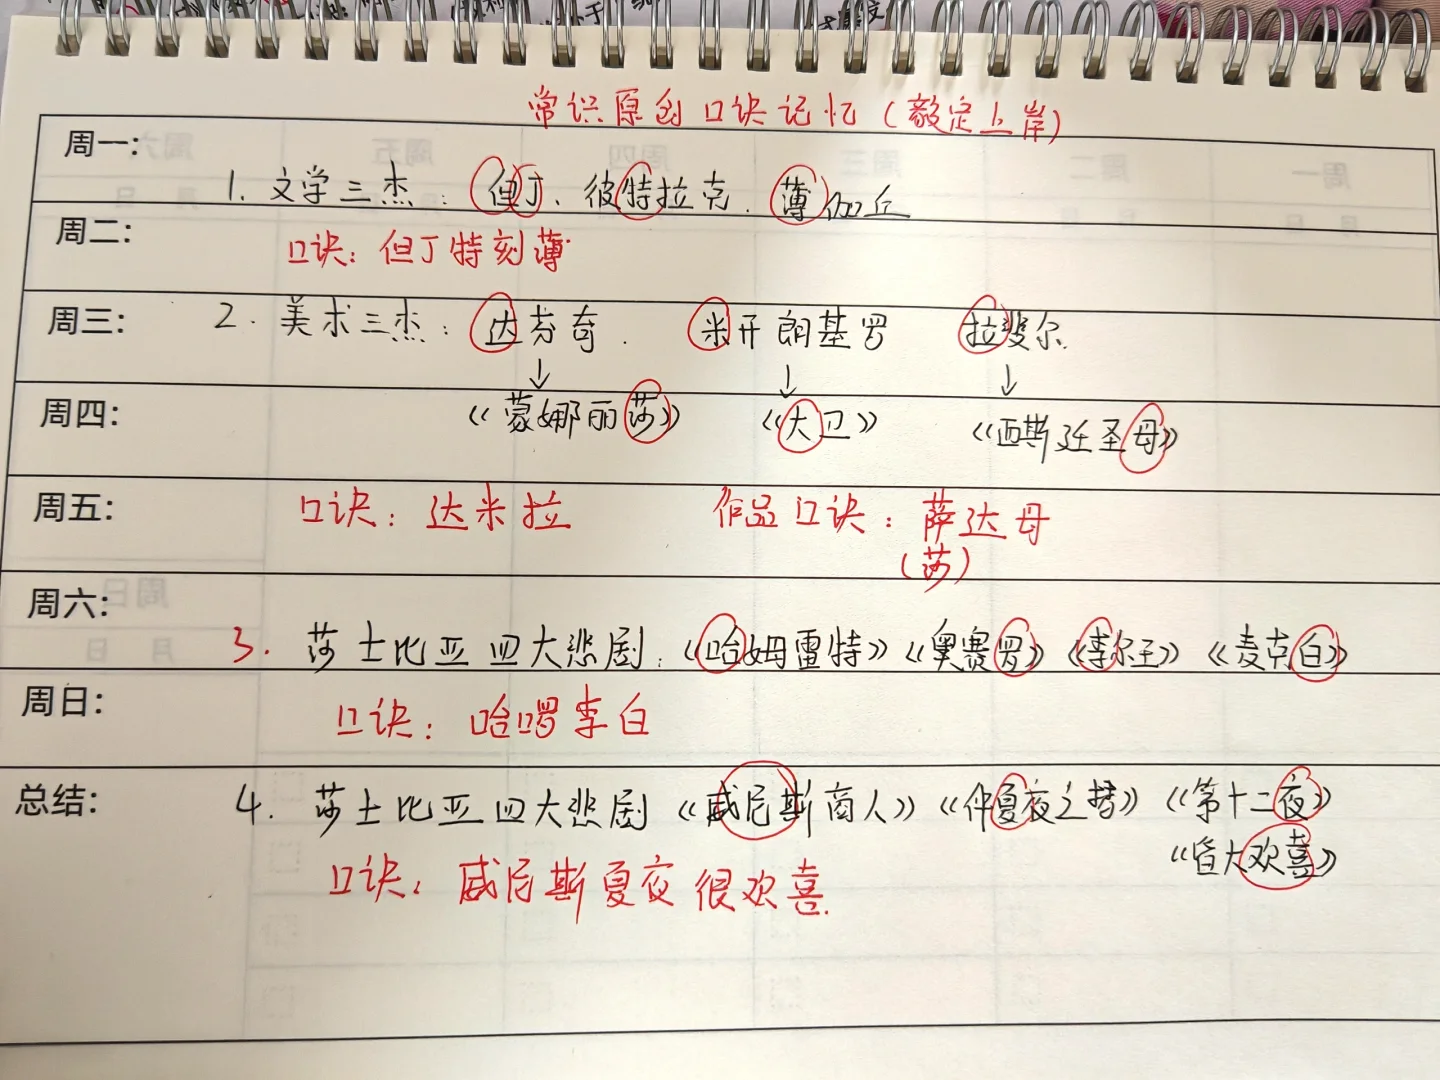 常识原创口诀记忆(毅定上岸)
周一:
1. 文学三杰: 但丁、彼特拉克、薄伽丘
周二:
口诀: 但丁特刻薄
周三:
2. 美术三杰: 达芬奇. 米开朗基罗 拉斐尔.
↓ ↓ ↓
周四:
《蒙娜丽莎》 《大卫》 《西斯廷圣母》
周五:
口诀: 达米拉 作品口诀: 萨达母
(莎)
周六:
3. 莎士比亚四大悲剧:《哈姆雷特》《奥赛罗》《李尔王》《麦克白》
周日:
口诀: 哈啰李白
总结:
4. 莎士比亚四大悲剧《威尼斯商人》《仲夏夜之梦》《第十二夜》
《皆大欢喜》
口诀: 威尼斯夏夜很欢喜.